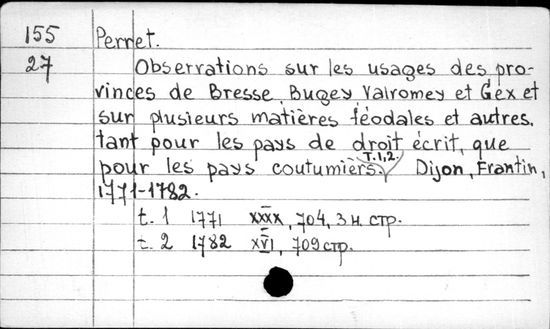 155 Perret.
27 Observations sur les usages des pro-
vinces de Bresse, Bugey, Valromey et Gex et
sur plusieurs matières féodales et autres,
tant pour les pays de droit écrit, que
pour les pays coutumiers. T.1,2. Dijon, Frantin,
1771-1782.
t. 1 1771 XXXX, 704, 3 н. стр.
t. 2 1782 XVI, 709 стр.